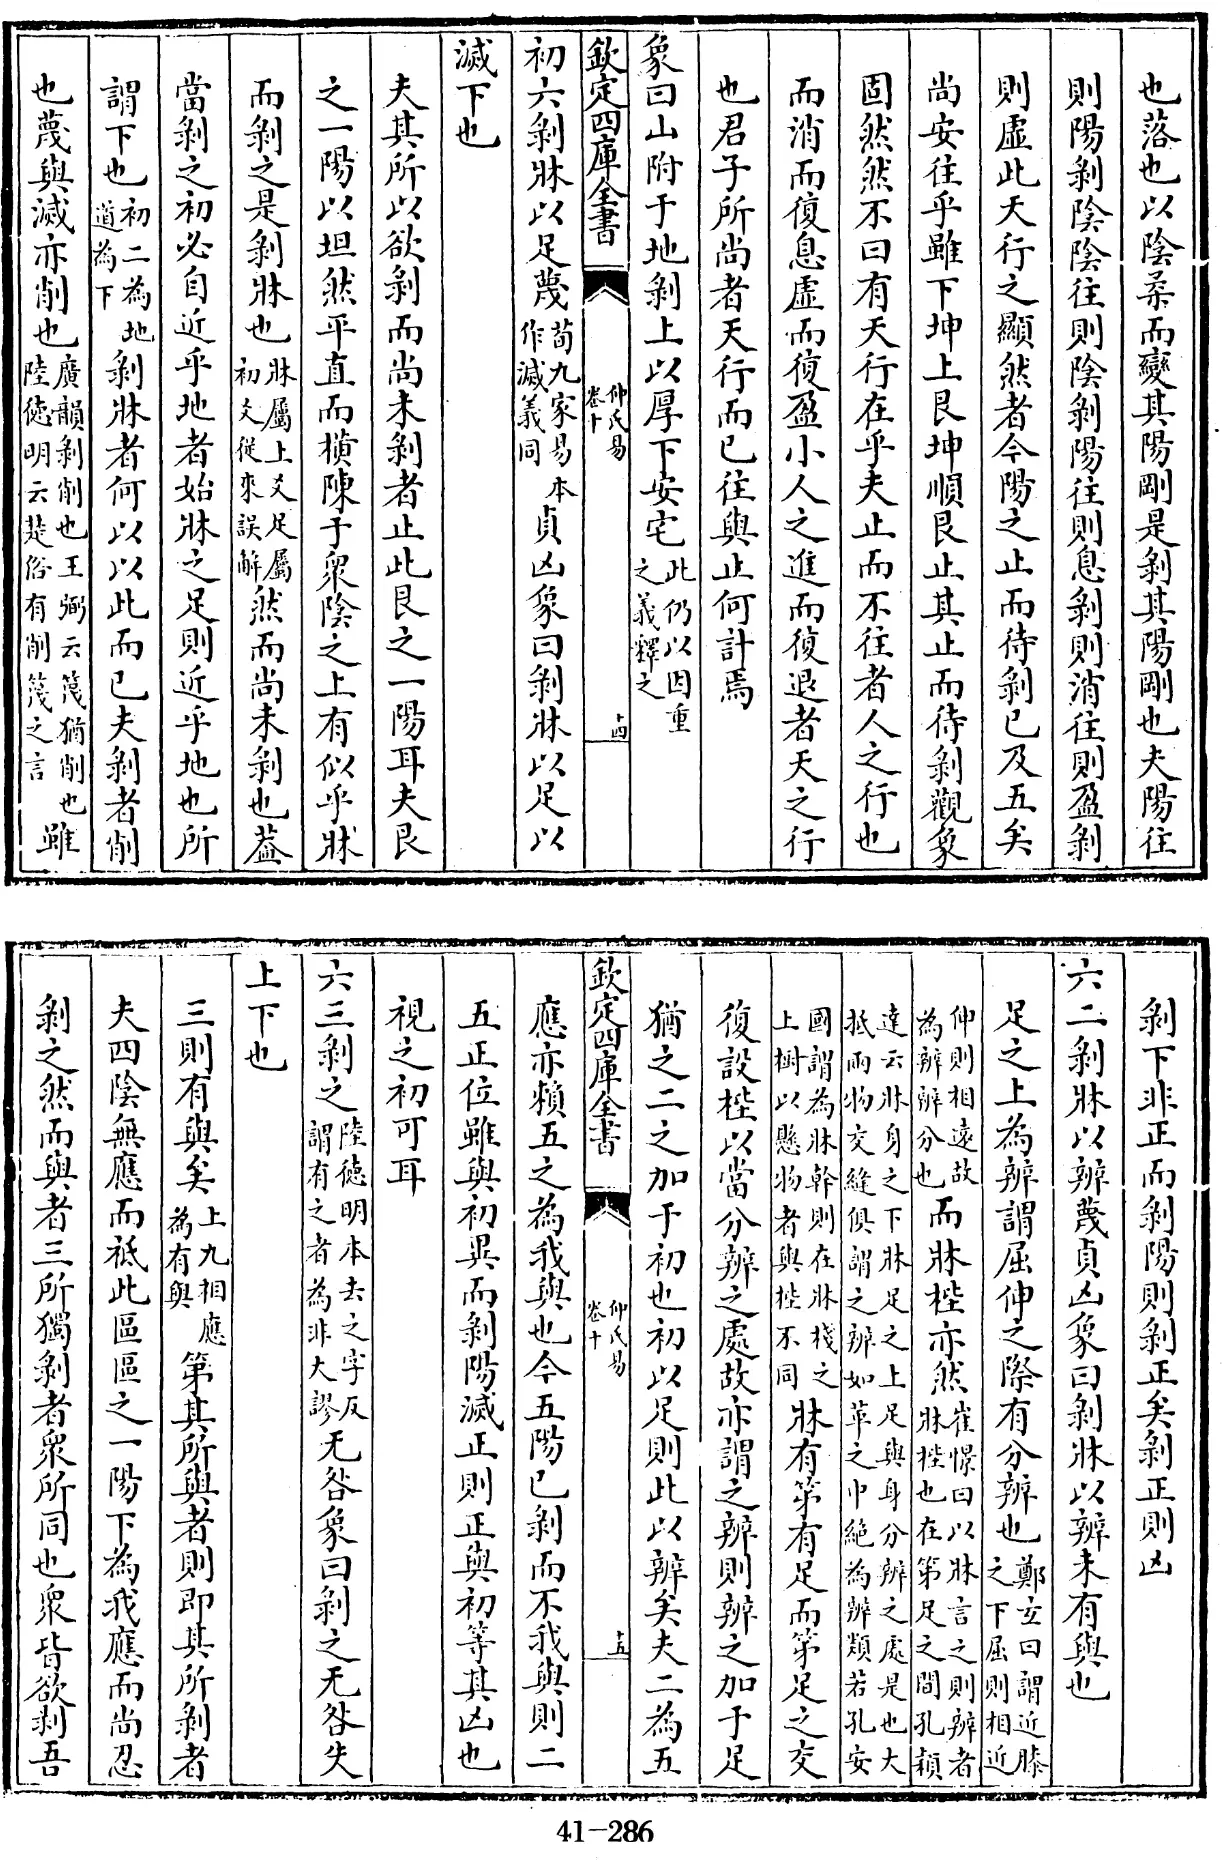 也落也以陰柔而變其陽剛是剝其陽剛也夫陽往
則陽剝陰陰往則陰剝陽往則息剝則消往則盈剝
則虛此天行之顯然者今陽之止而待剝已及五矣
尚安往乎雖下坤上艮坤順艮止其止而待剝觀象
固然然不曰有天行在乎夫止而不往者人之行也
而消而復息虛而復盈小人之進而復退者天之行
也君子所尚者天行而已往與止何計焉
象曰山附于地剝上以厚下安宅此仍以因重之義釋之
欽定四庫全書
仲氏易
卷十
十四
初六剝牀以足蔑荀九家易本作滅義同貞凶象曰剝牀以足以
滅下也
夫其所以欲剝而尚未剝者止此艮之一陽耳夫艮
之一陽以坦然平直而橫陳于衆陰之上有似乎牀
而剝之是剝牀也牀屬上爻足屬初爻從來誤解然而尚未剝也葢
當剝之初必自近乎地者始牀之足則近乎地也所
謂下也初二為地道為下剝牀者何以以此而已夫剝者削
也蔑與滅亦削也廣韻剝削也王弼云蔑猶削也陸德明云楚俗有削蔑之言雖
剝下非正而剝陽則剝正矣剝正則凶
六二剝牀以辨蔑貞凶象曰剝牀以辨未有與也
足之上為辨謂屈伸之際有分辨也鄭玄曰謂近膝之下屈則相近
伸則相遠故為辨辨分也而牀桯亦然崔憬曰以牀言之則辨者牀桯也在第足之間孔穎
達云牀身之下牀足之上足與身分辨之處是也大抵兩物交縫俱謂之辨如革之中絕為辨類若孔安
國謂為牀幹則在牀棧之上樹以懸物者與桯不同牀有第有足而第足之交
復設桯以當分辨之處故亦謂之辨則辨之加于足
猶之二之加于初也初以足則此以辨矣夫二為五
欽定四庫全書
仲氏易
卷十
十五
應亦賴五之為我與也今五陽已剝而不我與則二
五正位雖與初異而剝陽滅正則正與初等其凶也
視之初可耳
六三剝之陸德明本去之字反謂有之者為非大謬无咎象曰剝之无咎失
上下也
三則有與矣上九相應為有與第其所與者則即其所剝者
夫四陰無應而祗此區區之一陽下為我應而尚忍
剝之然而與者三所獨剝者衆所同也衆皆欲剝吾
41-286